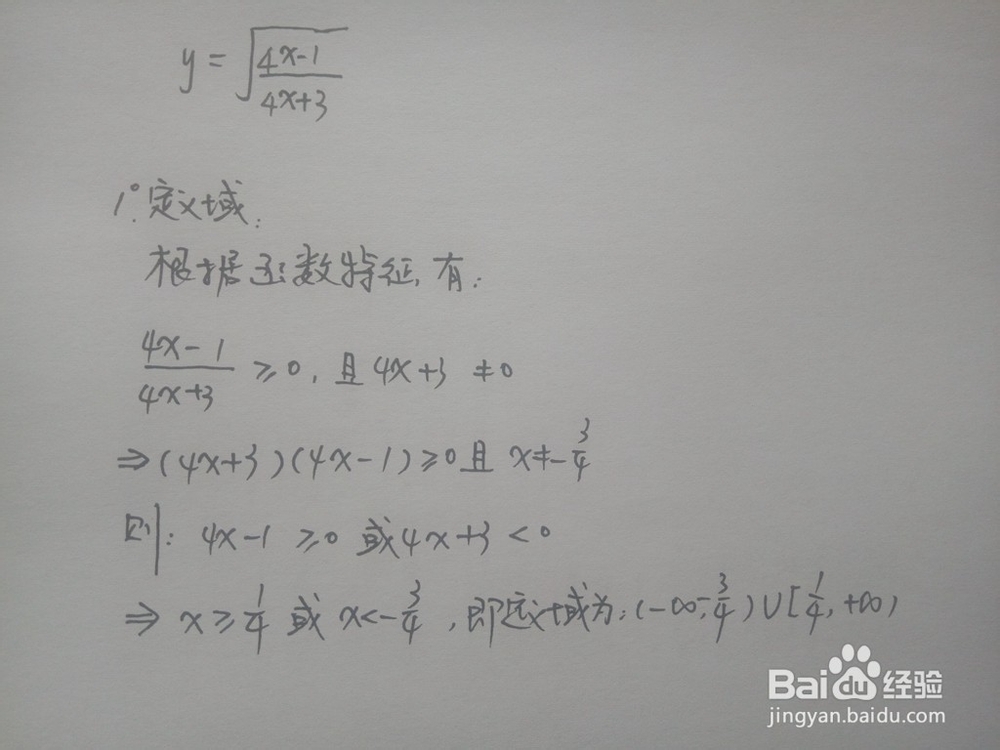 y = √((4x-1)/(4x+3))
1°.定义域:
根据函数特征,有:
(4x-1)/(4x+3) ≥0, 且 4x+3 ≠0
⇒(4x+3)(4x-1)≥0且 x≠-3/4
则: 4x-1 ≥0 或4x+3 <0
⇒ x≥1/4 或 x<-3/4 ,即定义域为:(-∞,-3/4)∪[1/4,+∞)
Baidu经验
jingyan.baidu.com